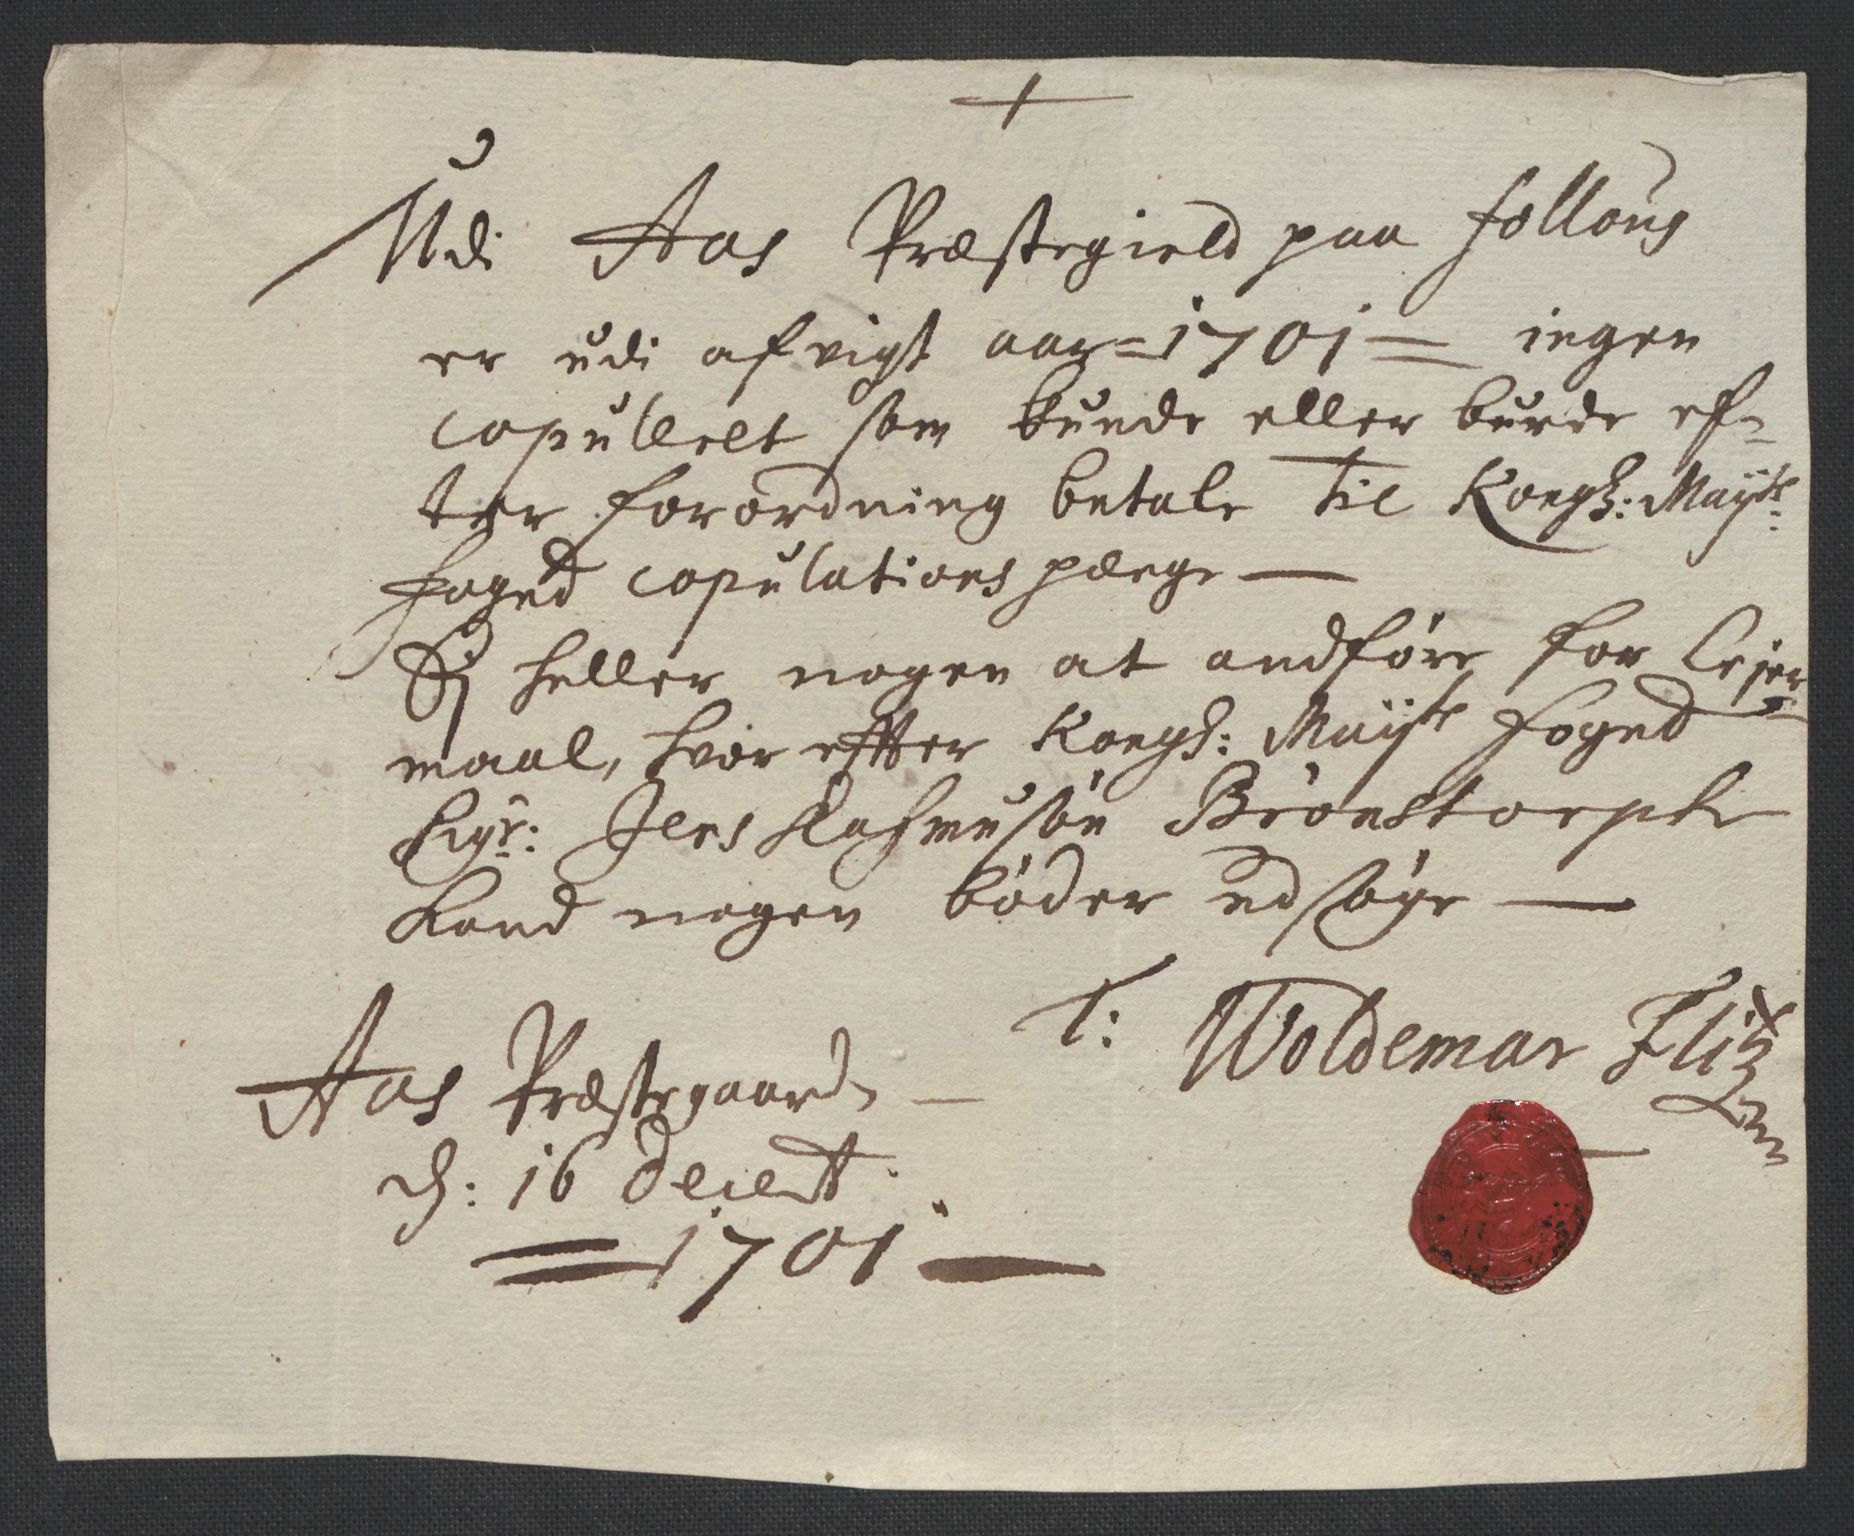 Udi Aas Præstegield paa Folloug
er udi afvigt aar = 1701 = ingen
copulleet som kunde eller burde ef=
ter forordning betale til Kongl: Mayts
foged copulations penge —
Ej heller nogen at andføre for Lejer
maal, hvor effter Kongl: Mayts foged
Sigr: Jens Rasmusøn Brønstorph
kand nogen bøder udsøge —
T: Woldemar
Aas Præstegaard —
d: 16 Decemb:
1701